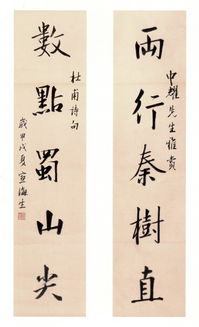 兩行秦樹直
中耀先生雅賞
數點蜀山尖
杜甫詩句
歲甲戌夏 海生